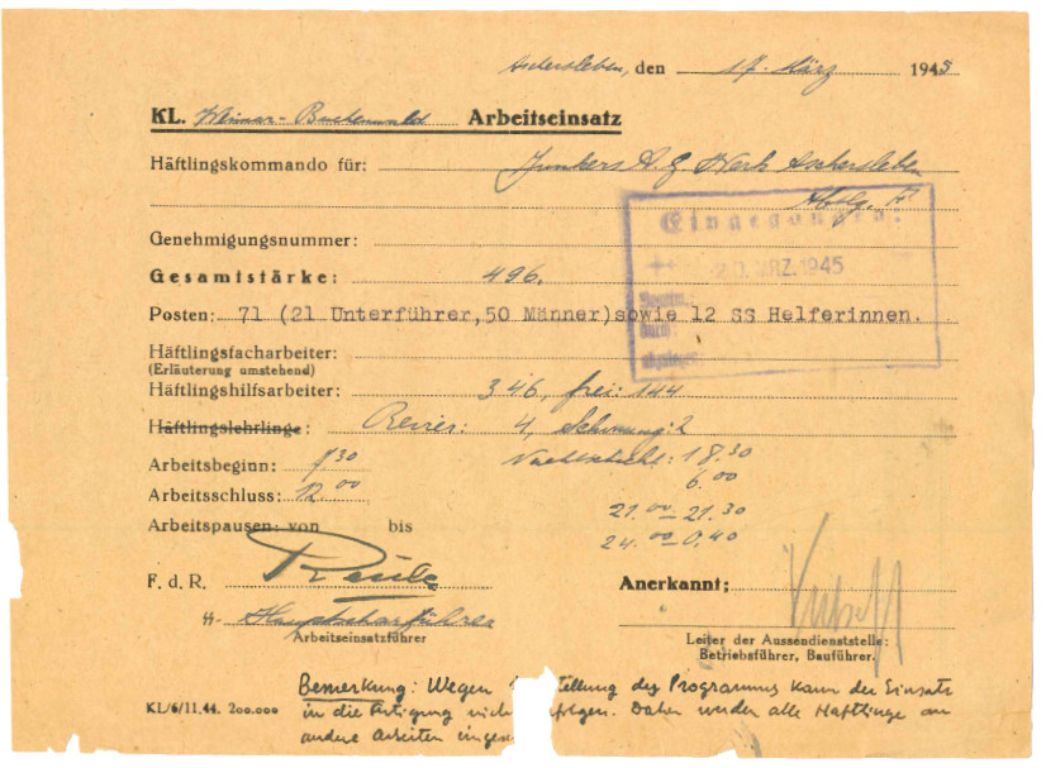 Aschersleben, den 17. März 1945
KL. Weimar-Buchenwald Arbeitseinsatz
Häftlingskommando für: Junkers A.G. Werk Aschersleben
Abtlg.
Eingegangen:
20. MRZ. 1945
Genehmigungsnummer:
Gesamtstärke: 496.
Posten: 71 (21 Unterführer,50 Männer)sowie 12 SS Helferinnen.
Häftlingsfacharbeiter:
(Erläuterung umstehend)
Häftlingshilfsarbeiter: 346, frei: 144
Häftlingslehrlinge: Revier: 4, Schonung: 2
Arbeitsbeginn: 7.30 Nachtschicht: 18.30
6.00
Arbeitsschluss: 12.00
21.00 - 21.30
Arbeitspausen: von bis
24.00 - 0,40
F. d. R.
Anerkannt:
SS- Hauptscharführer
Arbeitseinsatzführer
Leiter der Aussendienststelle:
Betriebsführer, Bauführer.
Bemerkung: Wegen tellung des Programms kann der Einsatz
KL/6/11.44. 200.000
in die Fertigung nich folgen. Daher werden alle Häftlinge an
andere Arbeiten einges